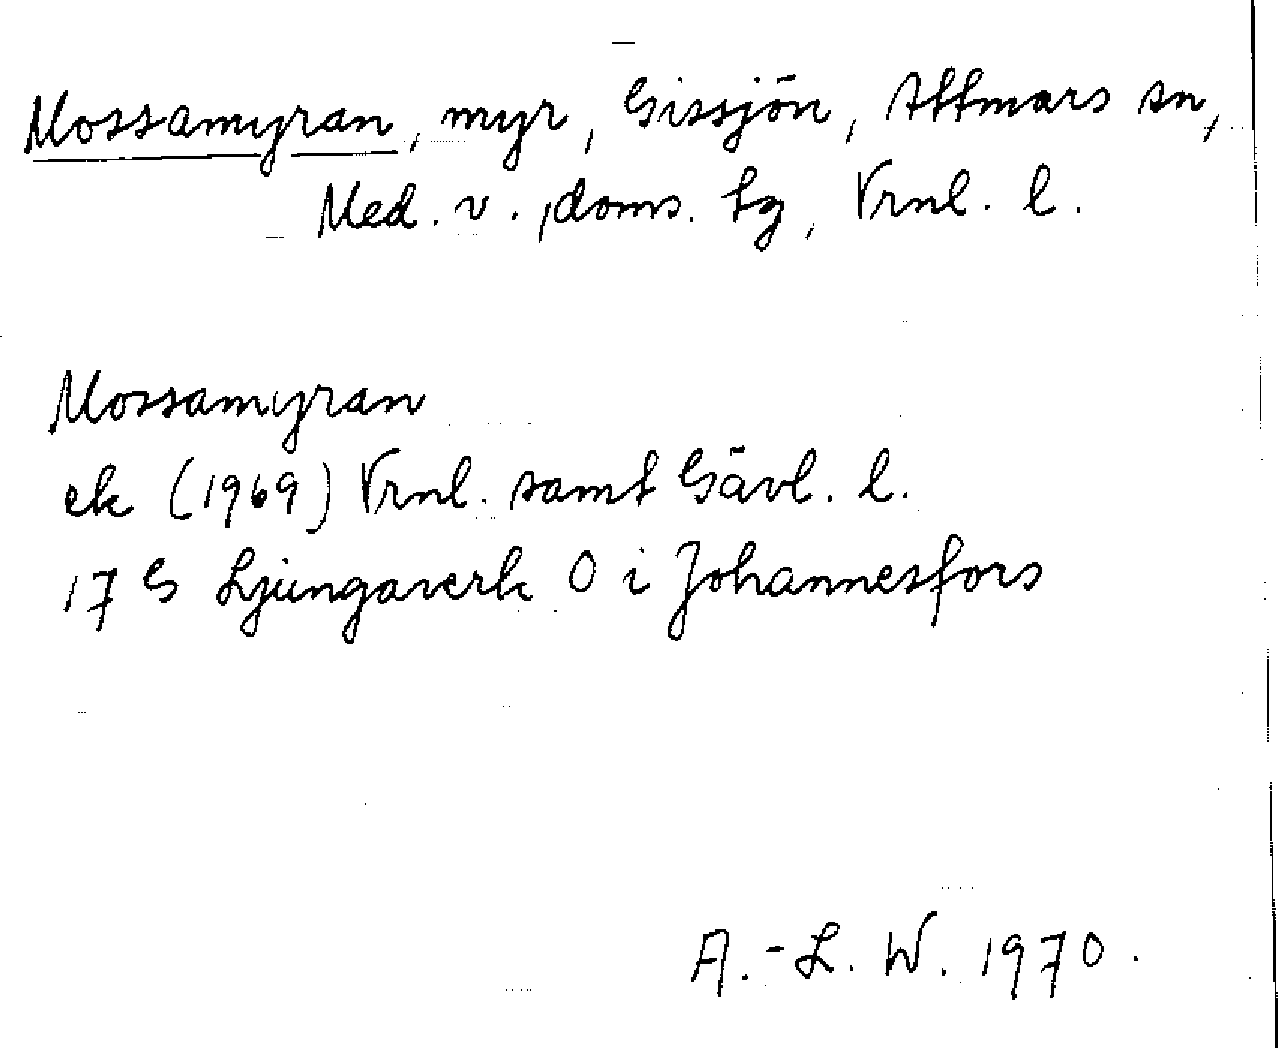 Mossamyran, myr, Gissjön, Attmars sn,
Med. v., doms. tg, Vrnl. l.
Mossamyran
ek (1969) Vrnl. samt Gävl. l.
17 G Ljungaverk O i Johannesfors
A.-L. W. 1970.